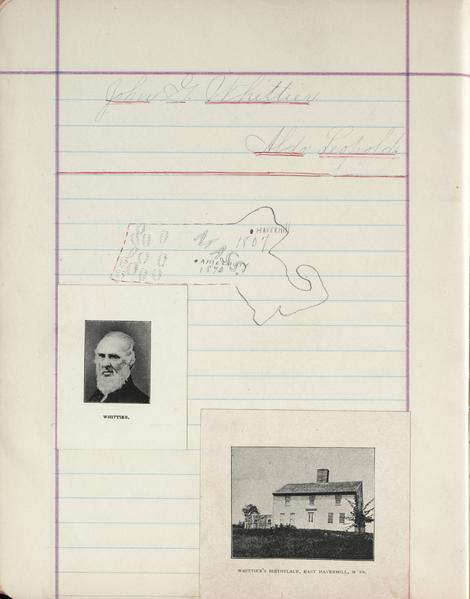 John G. Whittier
Aldo Leopold
HAVERHILL
1807
WHITTIER.
WHITTIER'S BIRTHPLACE, EAST HAVERHILL, M'SS.